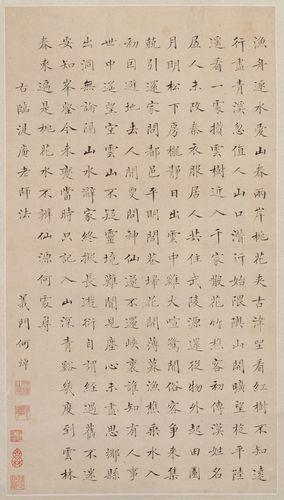 漁舟逐水愛山春兩岸桃花夾古津坐看紅樹不知遠
行盡青溪忽值人山口潛行始隈隩山開曠望旋平陸
遙看一處攢雲樹近入千家散花竹樵客初傳漢姓名
居人未改秦衣服居人共住武陵源還從物外起田園
月明松下房櫳靜日出雲中雞犬喧驚聞俗客爭來集
競引還家問都邑平明閭巷埽花開薄暮漁樵乘水入
初因避地去人間更問神仙遂不還峽裏誰知有人事
世中遙望空雲山不疑靈境難聞見塵心未盡思鄉縣
出洞無論隔山水辭家終擬長遊衍自謂經過舊不迷
安知峯壑今來變當時只記入山深青谿幾度到雲林
春來遍是桃花水不辨仙源何處尋
右臨庵老師法
義門何焯